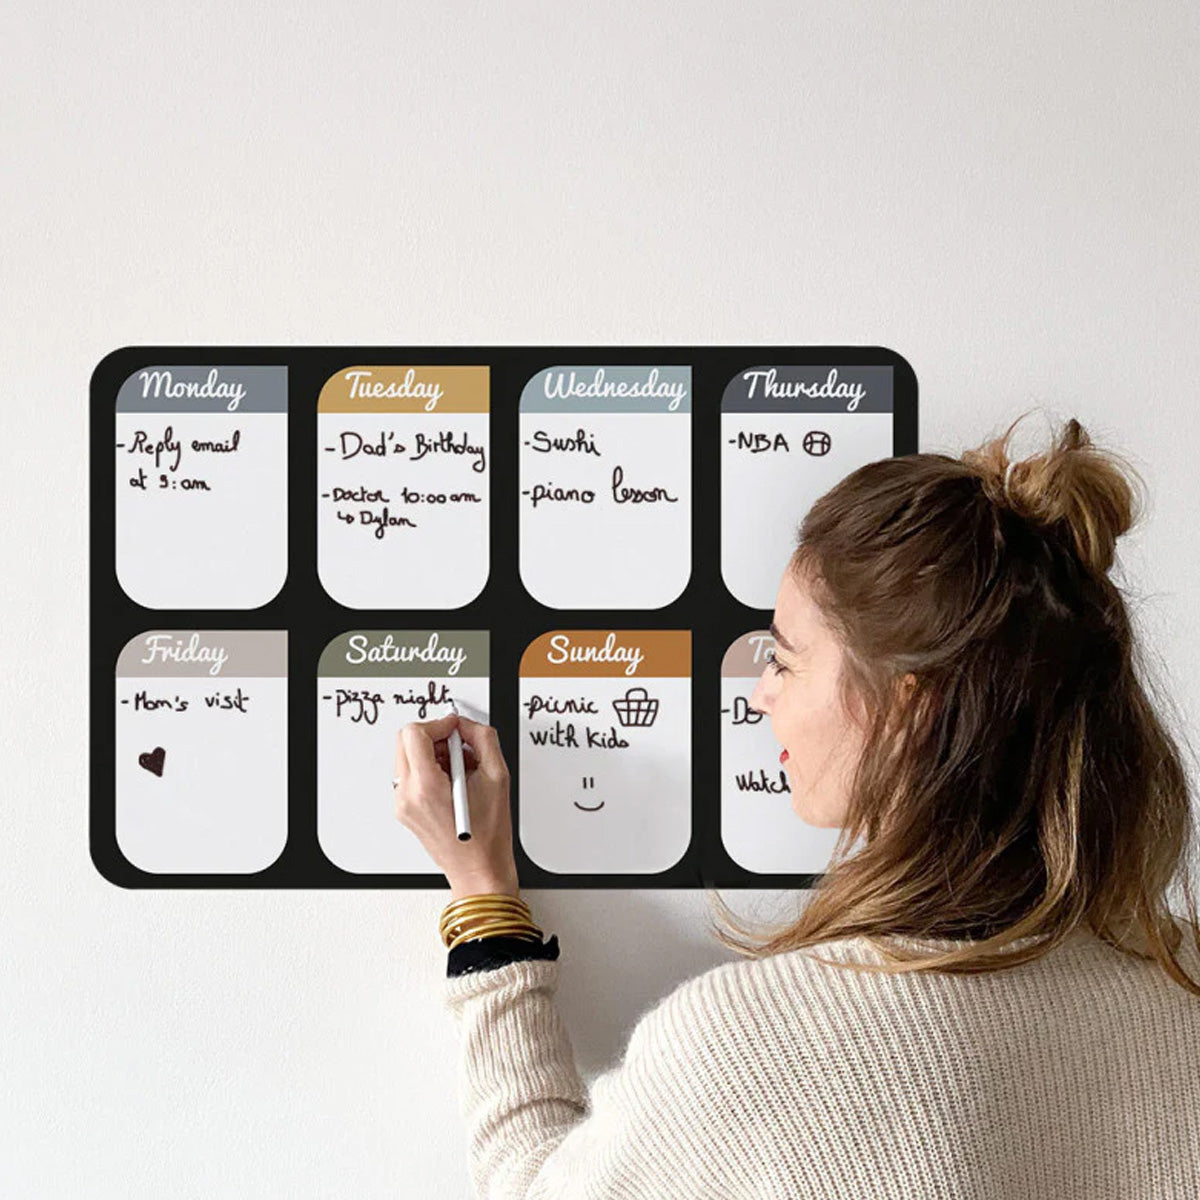 Monday
-Reply email
at 9:am
Tuesday
-Dad's Birthday
-Doctor 10:00 am
↳ Dylan
Wednesday
-Sushi
-piano lesson
Thursday
-NBA
Friday
-Mom's visit
Saturday
-pizza night
Sunday
-picnic
with kids